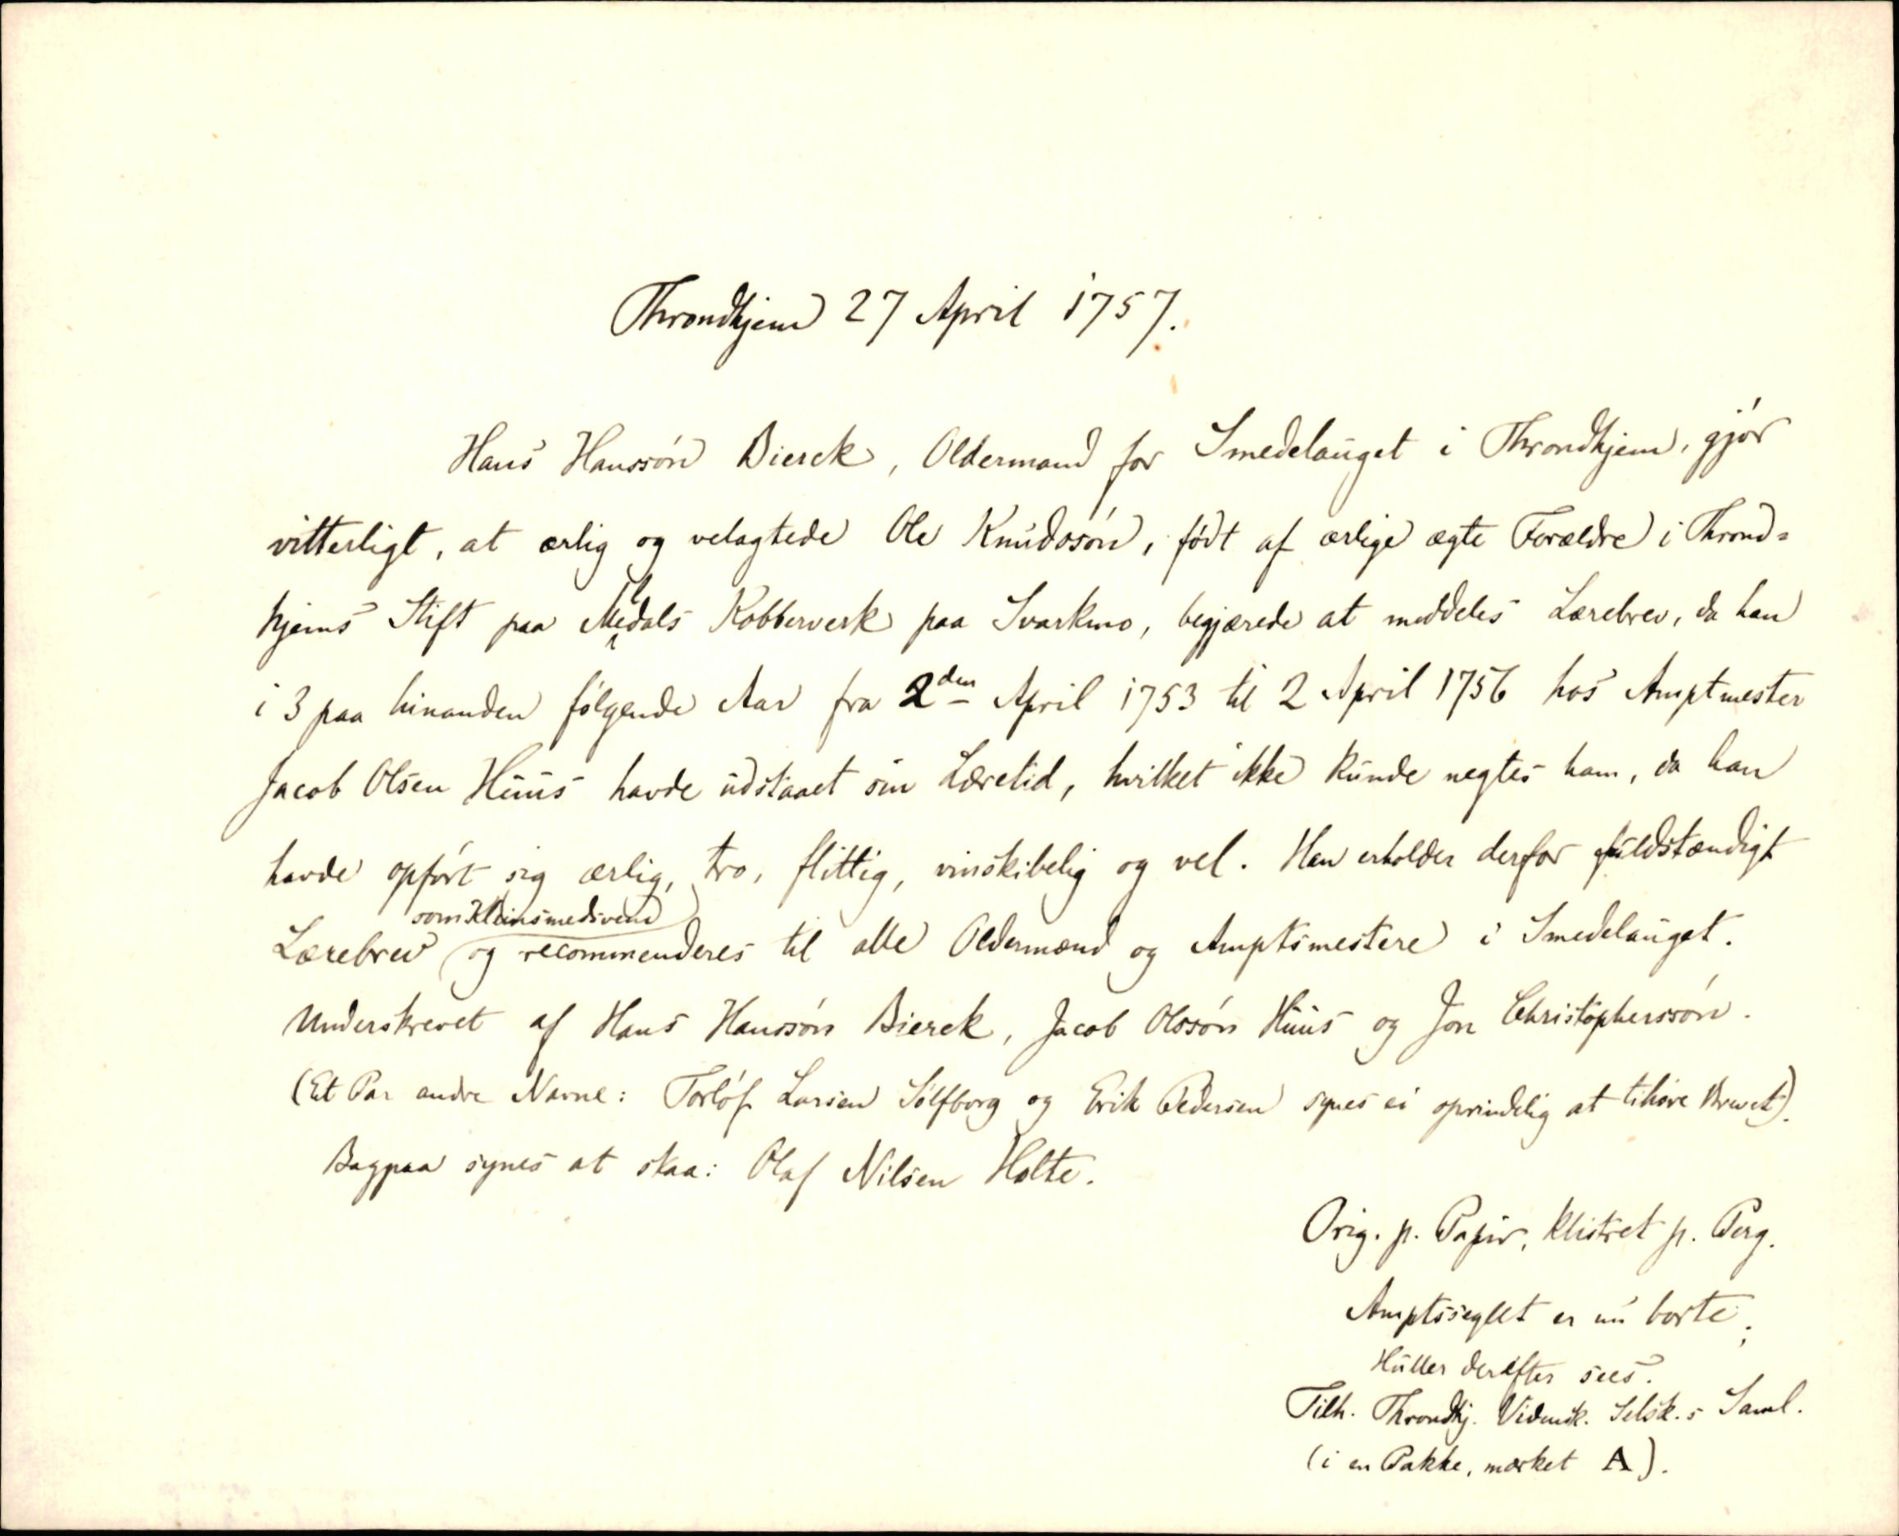 Throndhjem 27 April 1757.
Hans Hanssón Bierck, Oldermand for Smedelauget i Throndhjem, gjór
vitterligt, at ærlig og velagtede Ole Knudssón, fódt af ærlige ægte Forældre i Thrond-
hjems Stift paa Meldals Kobberverk paa Svarkmo, begjærede at meddeles Lærebrev, da han
i 3 paa hinanden fólgende Aar fra 2den April 1753 til 2 April 1756 hos Amptmester
Jacob Olsen Huus havde udstaaet sin Læretid, hvilket ikke kunde negtes ham, da han
havde opfórt sig ærlig, tro, flittig, vinskibelig og vel. Han erholder derfor fuldstændigt
som Kleinsmedsvend
Lærebrev og recommenderes til alle Oldermænd og Amptsmestere i Smedelauget.
Underskrevet af Hans Hanssón Bierck, Jacob Olssón Huus og Jon Christopherssón.
(Et Par andre Navne: Torlóf Larsen Sólfborg og Erik Pedersen synes ei oprindelig at tilhøre Brevet).
Bagpaa synes at staa: Olaf Nilsen Holte.
Orig. p. Papir, klistret p. Perg.
Amptsseglet er nu borte;
Huller derefter sees.
Tilh. Throndhj. Vidensk. Selsk.s Saml.
(i en Pakke, mærket A).